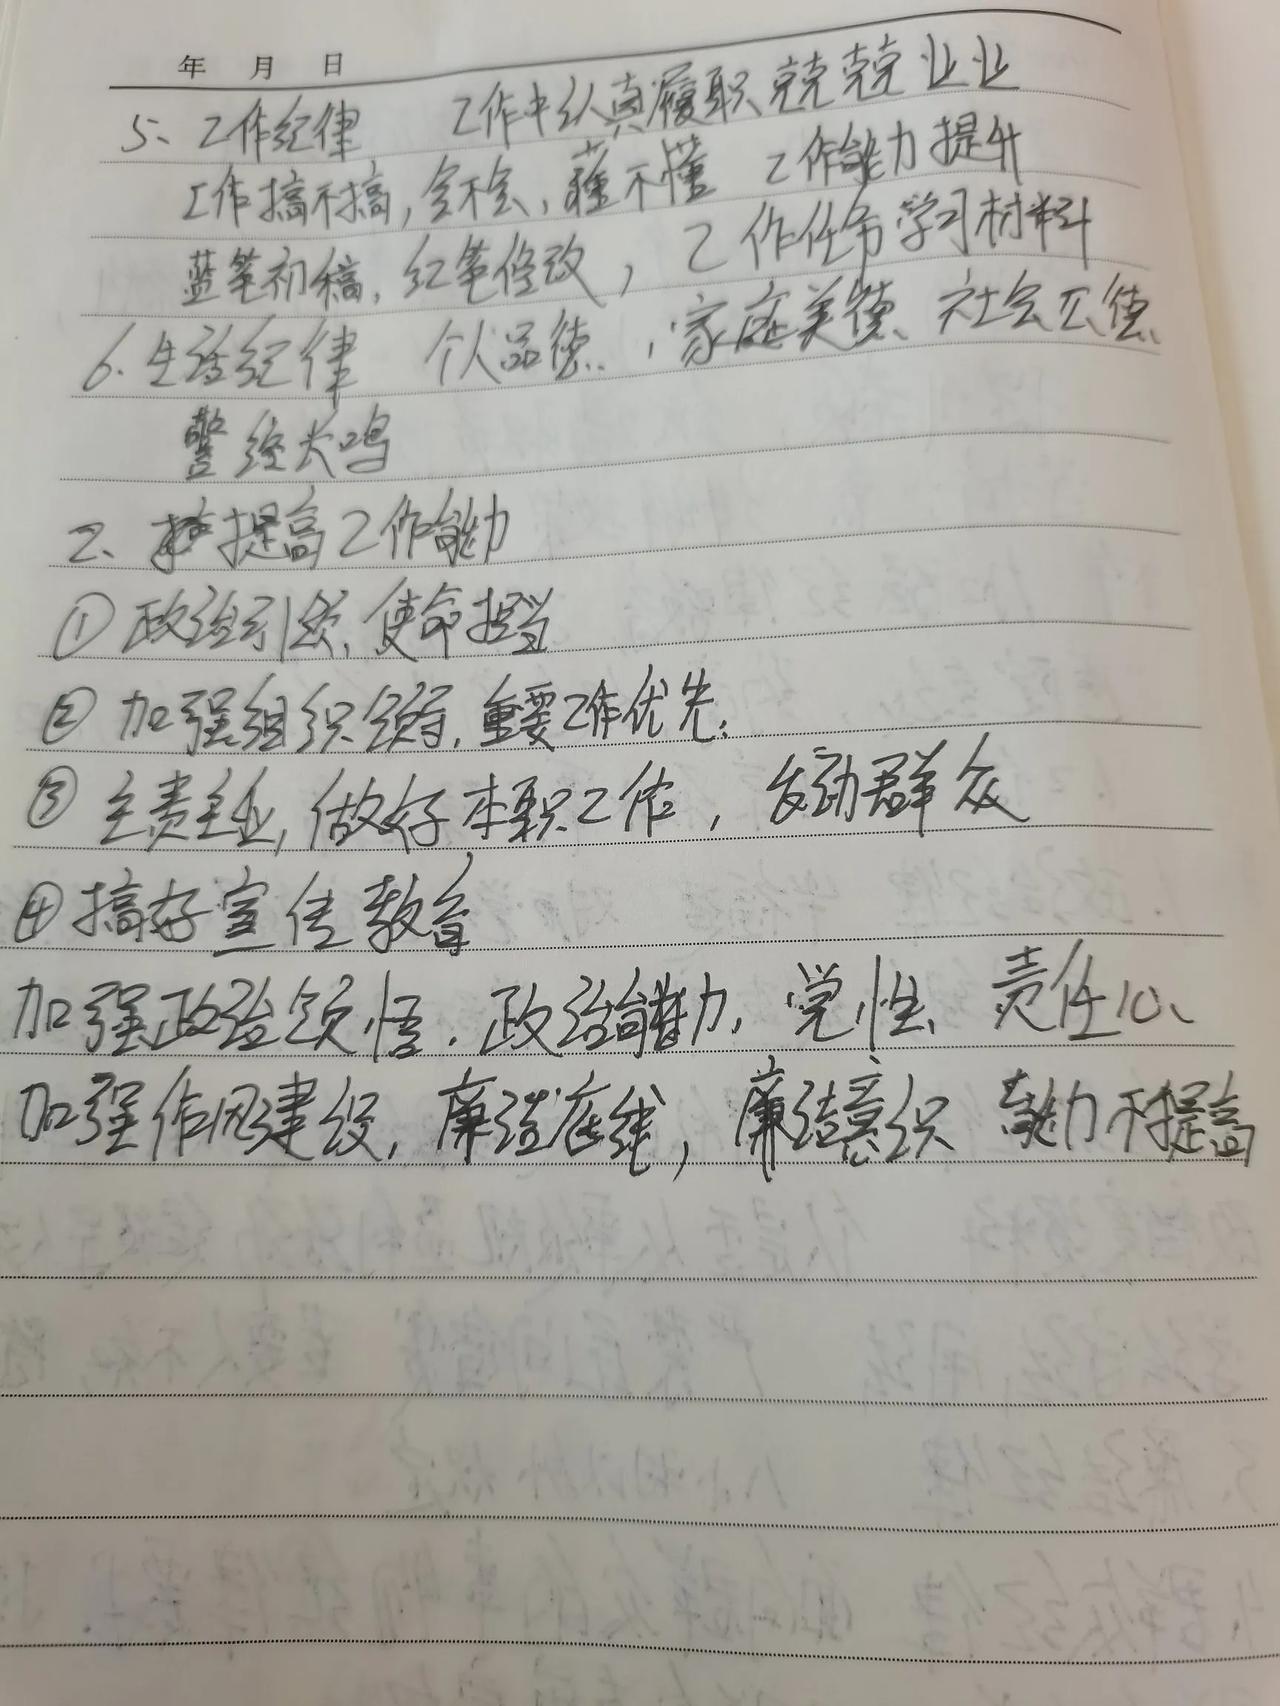 年 月 日
5、工作纪律 工作中认真履职 兢兢业业
工作搞不搞,会不会,懂不懂 工作能力提升
蓝笔初稿,红笔修改,工作任务学习材料
6.生活纪律 个人品德.,家庭美德、社会公德、
警钟长鸣
二、提高工作能力
①政治引领,使命担当
②加强组织领导,重要工作优先;
③主责主业,做好本职工作,发动群众
④搞好宣传教育
加强政治领悟.政治能力,党性、责任心、
加强作风建设,廉洁底线,廉洁意识 能力不提高